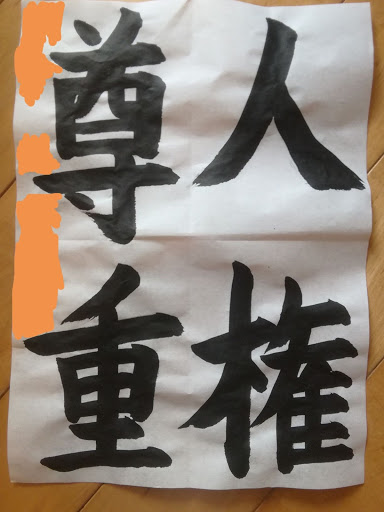 人権
尊重